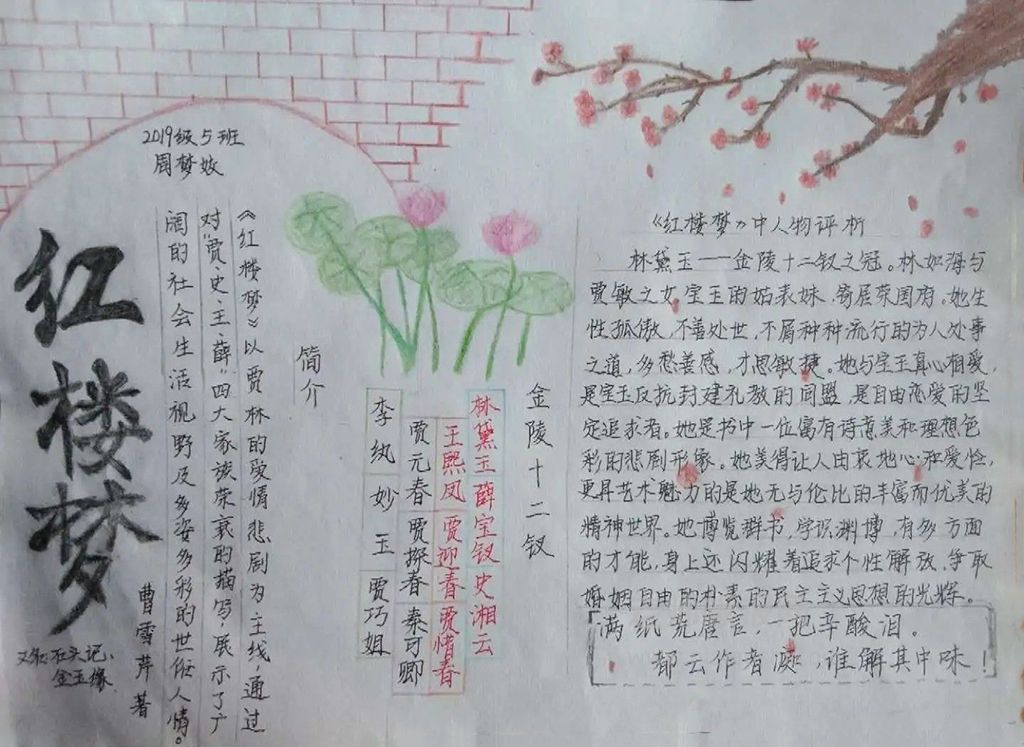 2019级5班
周梦姣
红楼梦
又名：石头记、
金玉缘
曹雪芹著
《红楼梦》以贾林的爱情悲剧为主线，通过
对“贾、史、王、薛”四大家族荣衰的描写，展示了广
阔的社会生活视野及多姿多彩的世俗人情。
简介
金陵十二钗
林黛玉 薛宝钗 史湘云
王熙凤 贾迎春 贾惜春
贾元春 贾探春 秦可卿
李纨 妙玉 贾巧姐
《红楼梦》中人物评析
林黛玉——金陵十二钗之冠。林如海与
贾敏之女，宝玉的姑表妹，寄居荣国府。她生
性孤傲，不善处世，不屑种种流行的为人处事
之道，多愁善感，才思敏捷。她与宝玉真心相爱，
是宝玉反抗封建礼教的同盟，是自由恋爱的坚
定追求者。她是书中一位富有诗意美和理想色
彩的悲剧形象。她美得让人由衷地心和爱怜，
更具艺术魅力的是她无与伦比的丰富而优美的
精神世界。她博览群书，学识渊博，有多方面
的才能，身上还闪耀着追求个性解放、争取
婚姻自由的朴素的民主主义思想的光辉。
满纸荒唐言，一把辛酸泪。
都云作者痴，谁解其中味！